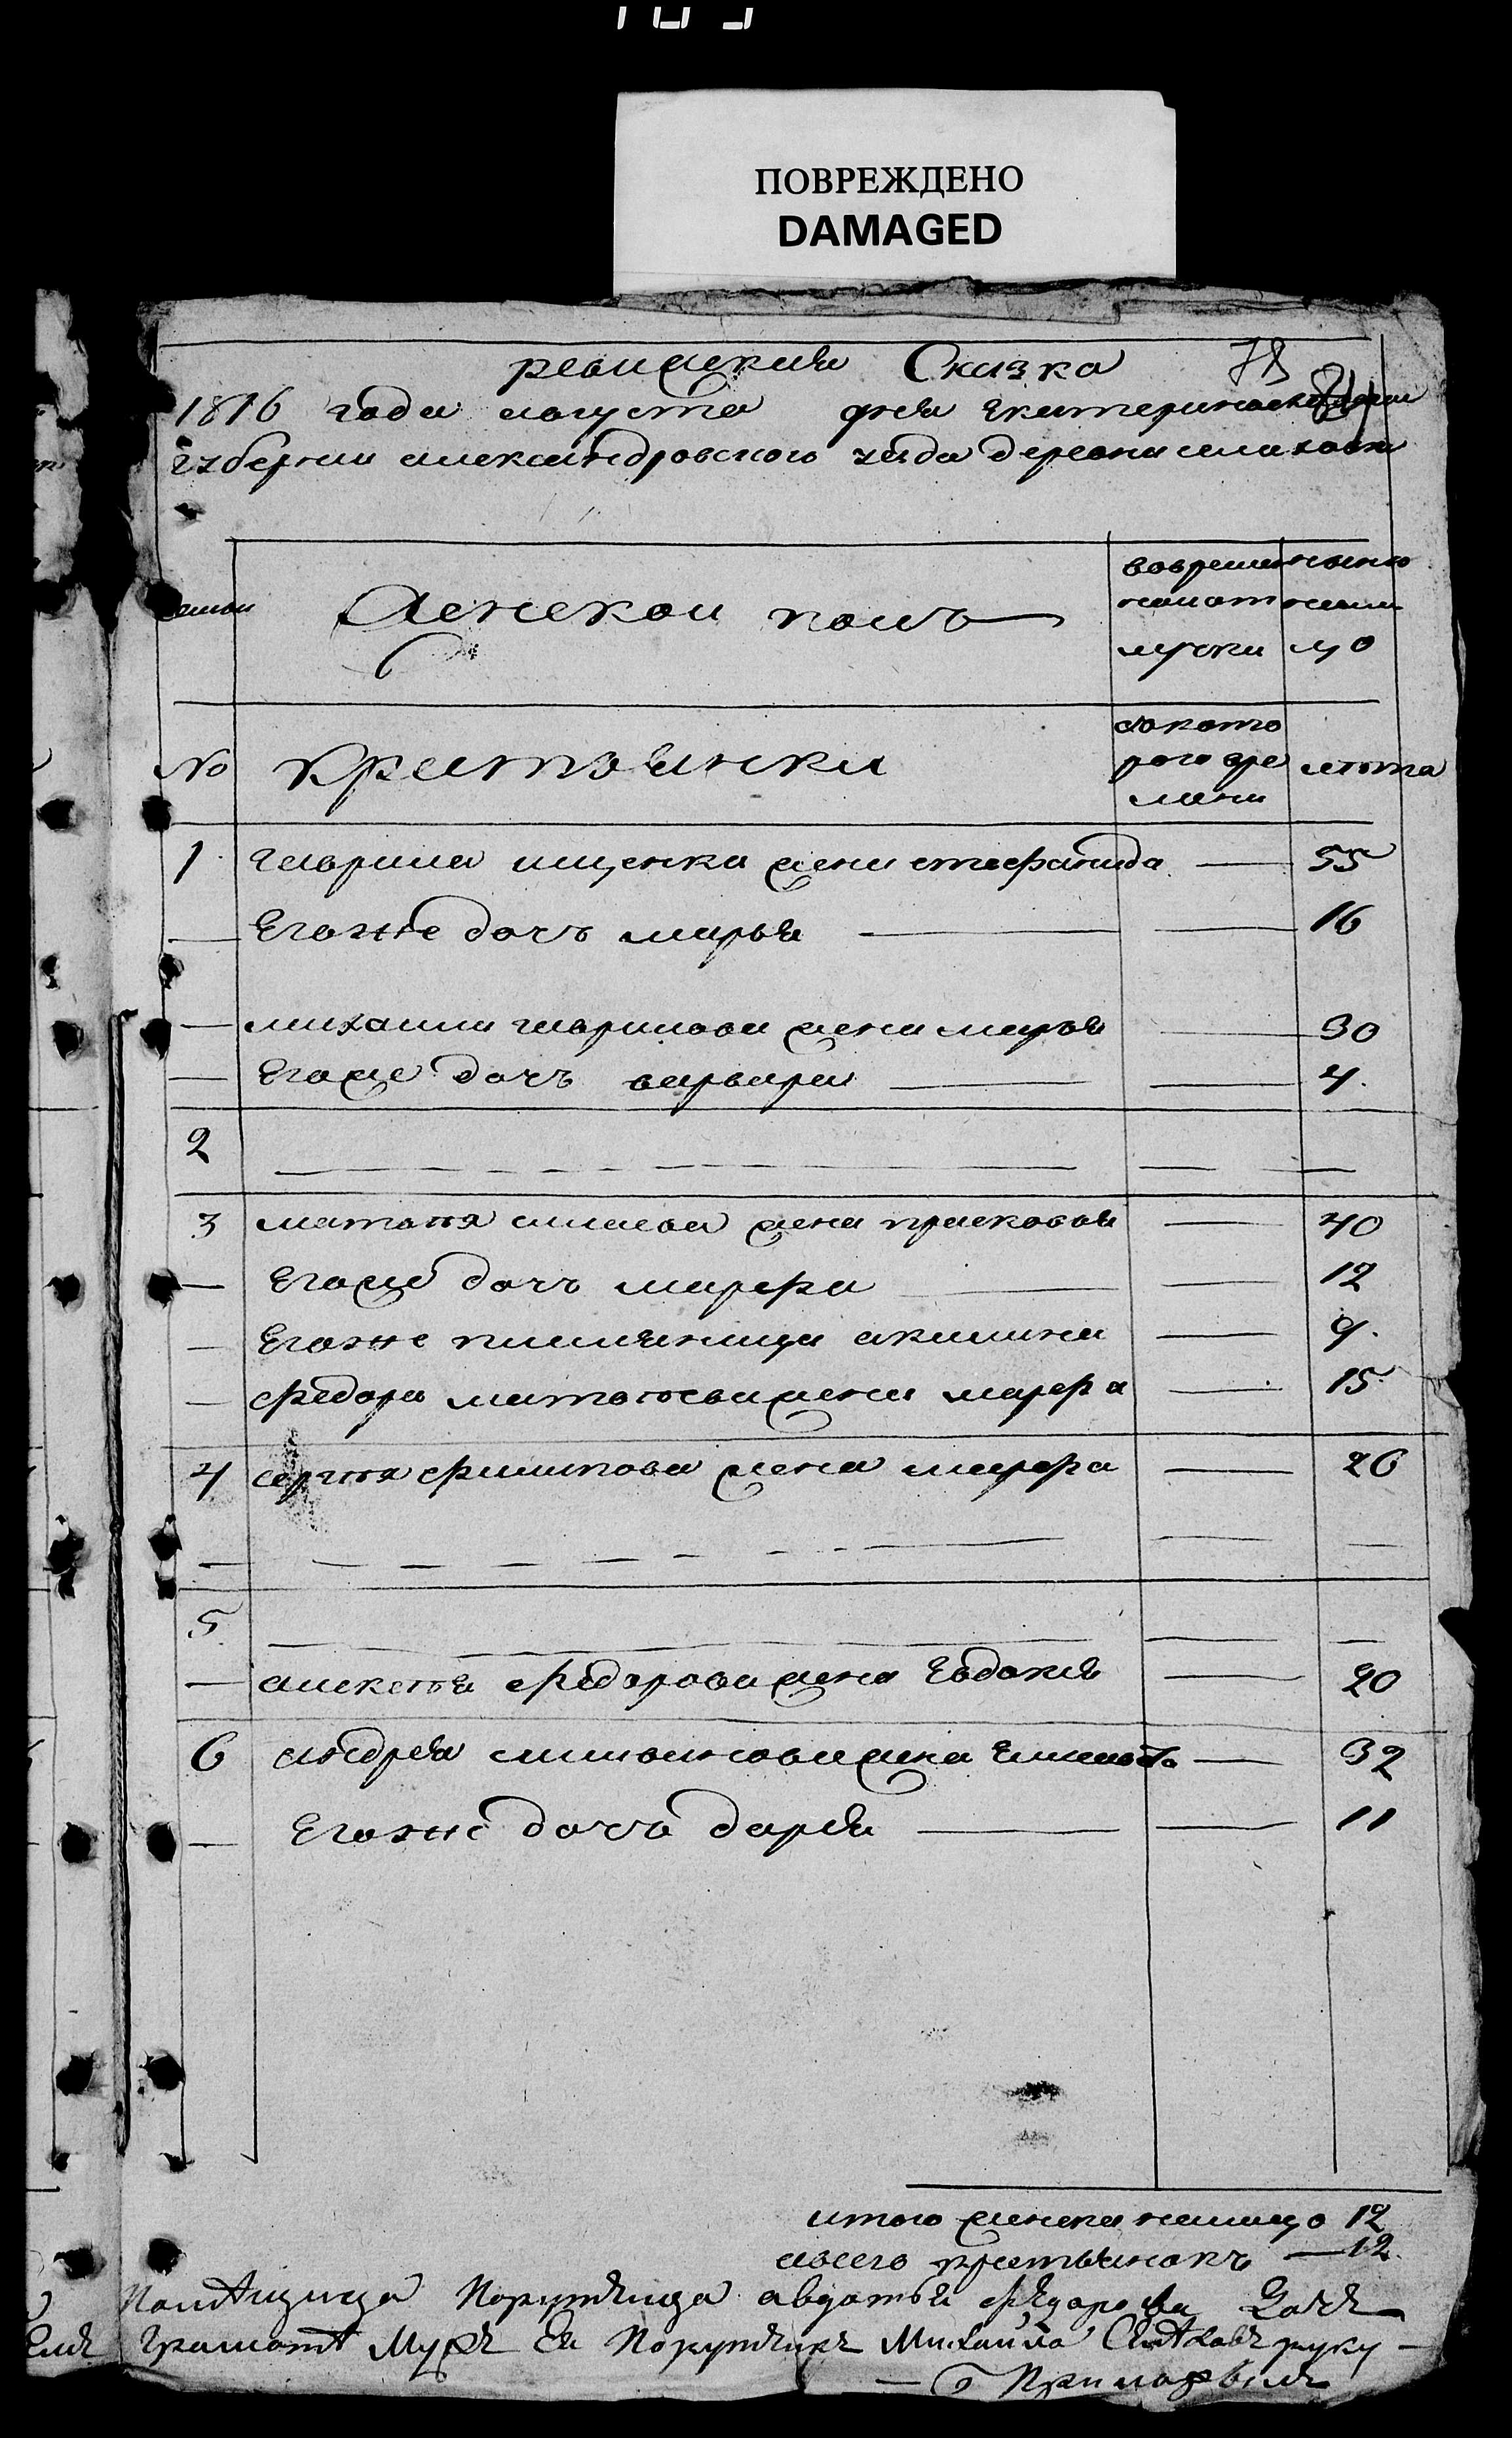 ПОВРЕЖДЕНО
DAMAGED
ревизская Сказка 78
1816 года августа дня Екатеринославской
губернии александровского уезда деревни
семьи
Женской полъ
вовремен
но
нали
цо
№ крестьянки
ското
рого вре
мени
лета
1 гаврила ищенка жена стефанида — 55
— Егожне дочъ марья — 16
— михаила гаврилова жена марья — 30
— Егоже дочъ варвара — 4.
2
3 матвея жена прасковья — 40
— Егоже дочъ марфа — 12
— Егожне племяница акилина — 9.
— федора матвеева жена марфа — 15
4 сергея филипова жена марфа — 26
5
— алексея федорова жена Евдокия — 20
6 андрея жена — 32
— Егожне дочъ дарья — 11
итого женска налицо 12
всего крестьянокъ — 12.
Помѣщица Порутчица авдотья Федорова
Грамоте Мужъ Ея Порутчикъ Михайла руку —
Приложылъ